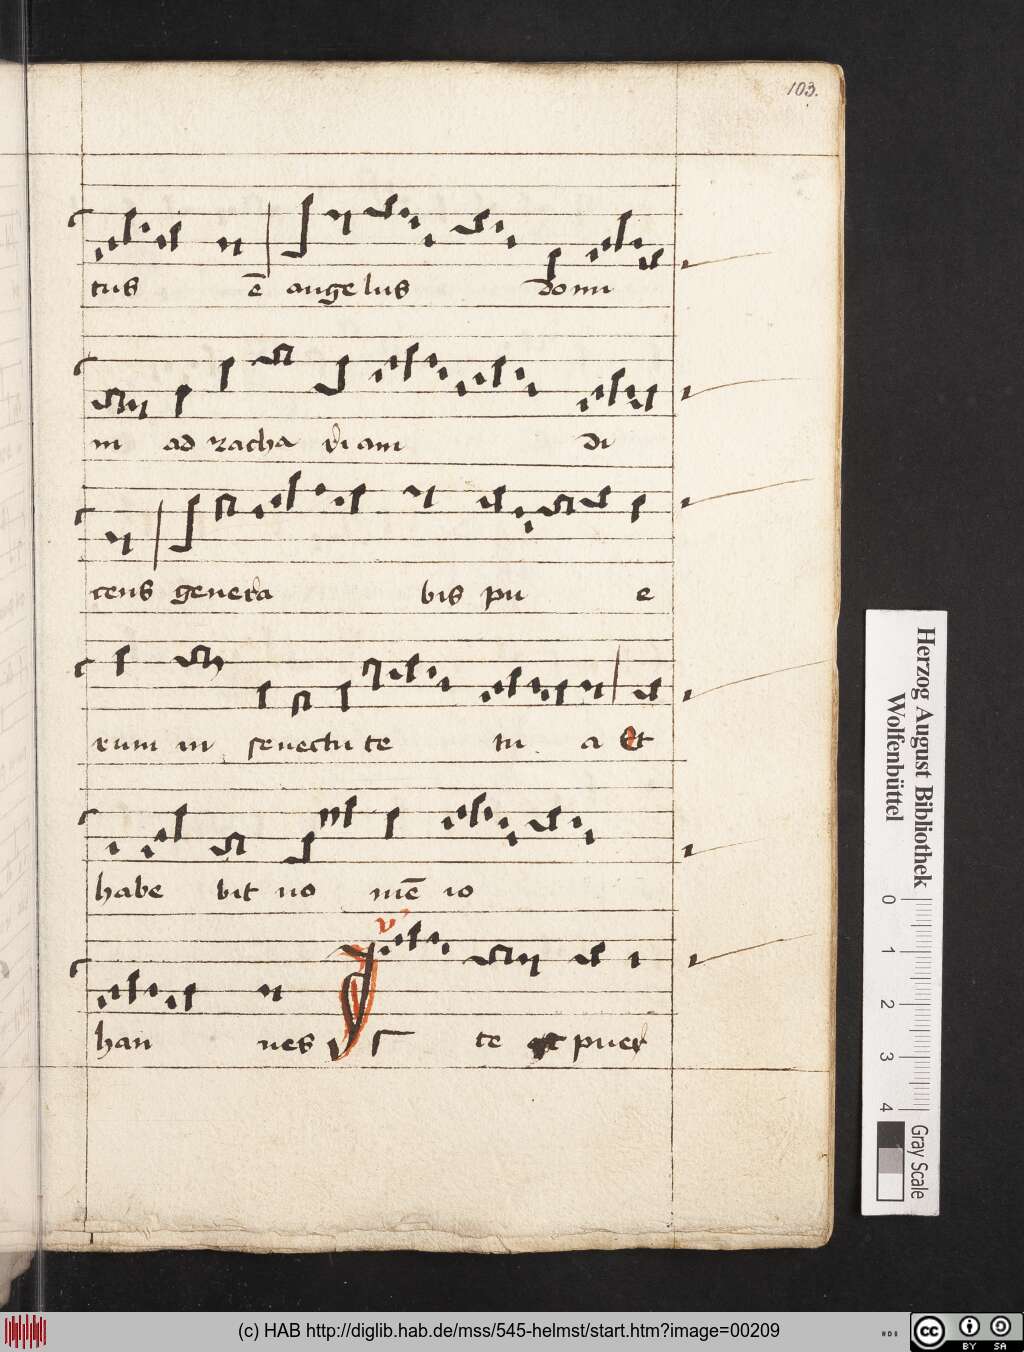 103.
tus ē angelus domi
ni ad zacha ri am di
cens genera bis pu e
rum in senectu te tu a Et
habe bit no mē io
v
han nes Is te puer
Herzog August Bibliothek
Wolfenbüttel
0 1 2 3 4
Gray Scale
(c) HAB http://diglib.hab.de/mss/545-helmst/start.htm?image=00209
cc BY SA